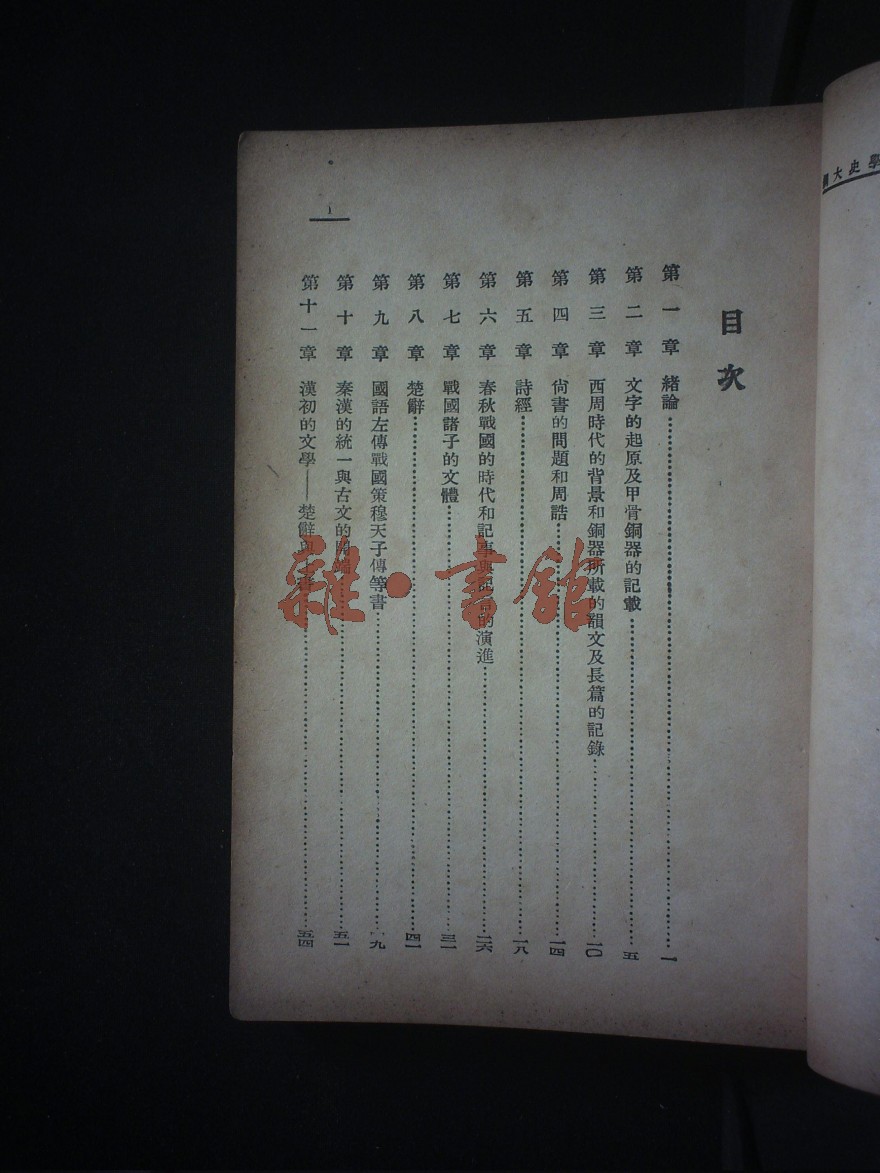 學史大
目次
第一章 緒論 一
第二章 文字的起原及甲骨銅器的記載 五
第三章 西周時代的背景和銅器所載的韻文及長篇的記錄 一〇
第四章 尚書的問題和周誥 一四
第五章 詩經 一八
第六章 春秋戰國的時代和記事與記言的演進 二六
第七章 戰國諸子的文體 三一
第八章 楚辭 四一
第九章 國語左傳戰國策穆天子傳等書 九
第十章 秦漢的統一與古文的開端 五一
第十一章 漢初的文學——楚辭與 五四
1
雜·書館